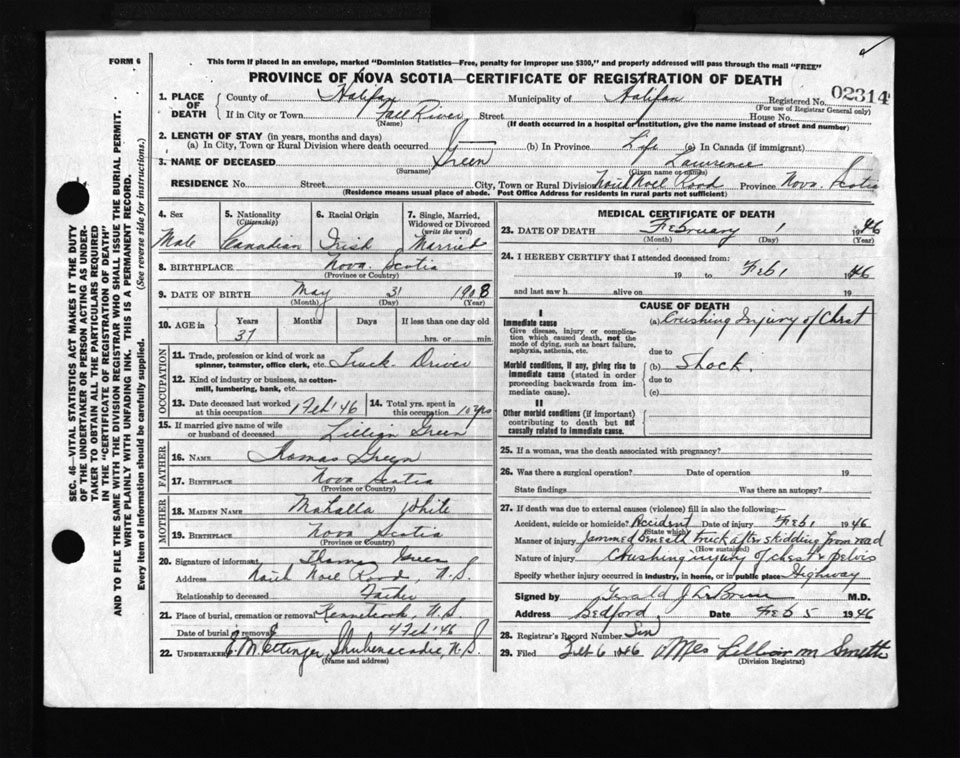 FORM 6
This form if placed in an envelope, marked "Dominion Statistics—Free, penalty for improper use $300," and properly addressed will pass through the mail "FREE"
PROVINCE OF NOVA SCOTIA—CERTIFICATE OF REGISTRATION OF DEATH
02314
1. PLACE OF DEATH County of Halifax Municipality of Halifax Registered No.
(For use of Registrar General only)
If in City or Town Fall River Street House No.
(Name) (If death occurred in a hospital or institution, give the name instead of street and number)
2. LENGTH OF STAY (in years, months and days)
(a) In City, Town or Rural Division where death occurred (b) In Province Life (c) In Canada (if immigrant)
3. NAME OF DECEASED Green Lawrence
(Surname) (Given name or names)
RESIDENCE No. Street City, Town or Rural Division Noel Road Province Nova Scotia
(Residence means usual place of abode. Post Office Address for residents in rural parts not sufficient)
SEC. 46—VITAL STATISTICS ACT MAKES IT THE DUTY
OF THE UNDERTAKER OR PERSON ACTING AS UNDER-
TAKER TO OBTAIN ALL THE PARTICULARS REQUIRED
IN THE "CERTIFICATE OF REGISTRATION OF DEATH"
AND TO FILE THE SAME WITH THE DIVISION REGISTRAR WHO SHALL ISSUE THE BURIAL PERMIT.
WRITE PLAINLY WITH UNFADING INK. THIS IS A PERMANENT RECORD.
Every item of information should be carefully supplied. (See reverse side for instructions.)
4. Sex 5. Nationality (Citizenship) 6. Racial Origin 7. Single, Married, Widowed or Divorced (write the word)
Male Canadian Irish Married
8. BIRTHPLACE Nova Scotia
(Province or Country)
9. DATE OF BIRTH May 31 1908
(Month) (Day) (Year)
10. AGE in Years Months Days If less than one day old
37 hrs. or min.
OCCUPATION
11. Trade, profession or kind of work as spinner, teamster, office clerk, etc. Truck Driver
12. Kind of industry or business, as cotton-mill, lumbering, bank, etc.
13. Date deceased last worked at this occupation 1 Feb '46 14. Total yrs. spent in this occupation 10 yrs
15. If married give name of wife or husband of deceased Lillian Green
FATHER
16. NAME Thomas Green
17. BIRTHPLACE Nova Scotia
(Province or Country)
MOTHER
18. MAIDEN NAME Mahalla White
19. BIRTHPLACE Nova Scotia
(Province or Country)
20. Signature of informant Thomas Green
Address Noel Road, N.S.
Relationship to deceased Father
21. Place of burial, cremation or removal Kennetcook, N.S.
Date of burial or removal 4 Feb '46
22. UNDERTAKER E. M. Ettinger, Shubenacadie, N.S.
(Name and address)
MEDICAL CERTIFICATE OF DEATH
23. DATE OF DEATH February 1 1946
(Month) (Day) (Year)
24. I HEREBY CERTIFY that I attended deceased from:
19 to Feb 1 1946
and last saw h alive on 19
CAUSE OF DEATH
I
Immediate cause (a) Crushing Injury of Chest
Give disease, injury or complication which caused death, not the mode of dying, such as heart failure, asphyxia, asthenia, etc. due to
Morbid conditions, if any, giving rise to immediate cause (stated in order proceeding backwards from immediate cause). (b) Shock.
due to
(c)
II
Other morbid conditions (if important) contributing to death but not causally related to immediate cause.
25. If a woman, was the death associated with pregnancy?
26. Was there a surgical operation? Date of operation 19
State findings Was there an autopsy?
27. If death was due to external causes (violence) fill in also the following:
Accident, suicide or homicide? Accident Date of injury Feb 1 1946
(State which)
Manner of injury Jammed beneath truck after skidding from road
(How sustained)
Nature of injury Crushing injury of chest & pelvis
Specify whether injury occurred in industry, in home, or in public place Highway
Signed by Gerald J. LeBrun M.D.
Address Bedford Date Feb 5 1946
28. Registrar's Record Number
29. Filed Feb 6 1946 Mrs Lillian M Smith
(Division Registrar)